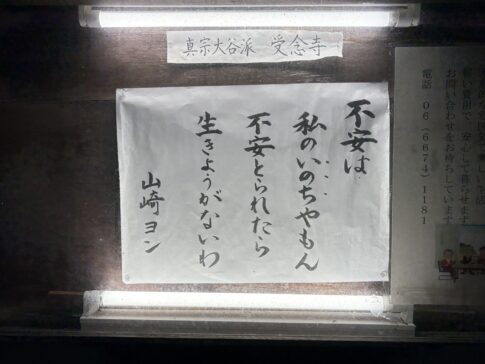 真宗大谷派 受念寺
不安は
私のいのちやもん
不安とられたら
生きようがないわ
山崎ヨン
軽い費用で、安心して暮らせます
お問い合わせをお待ちしています
電話 06(6674)1181